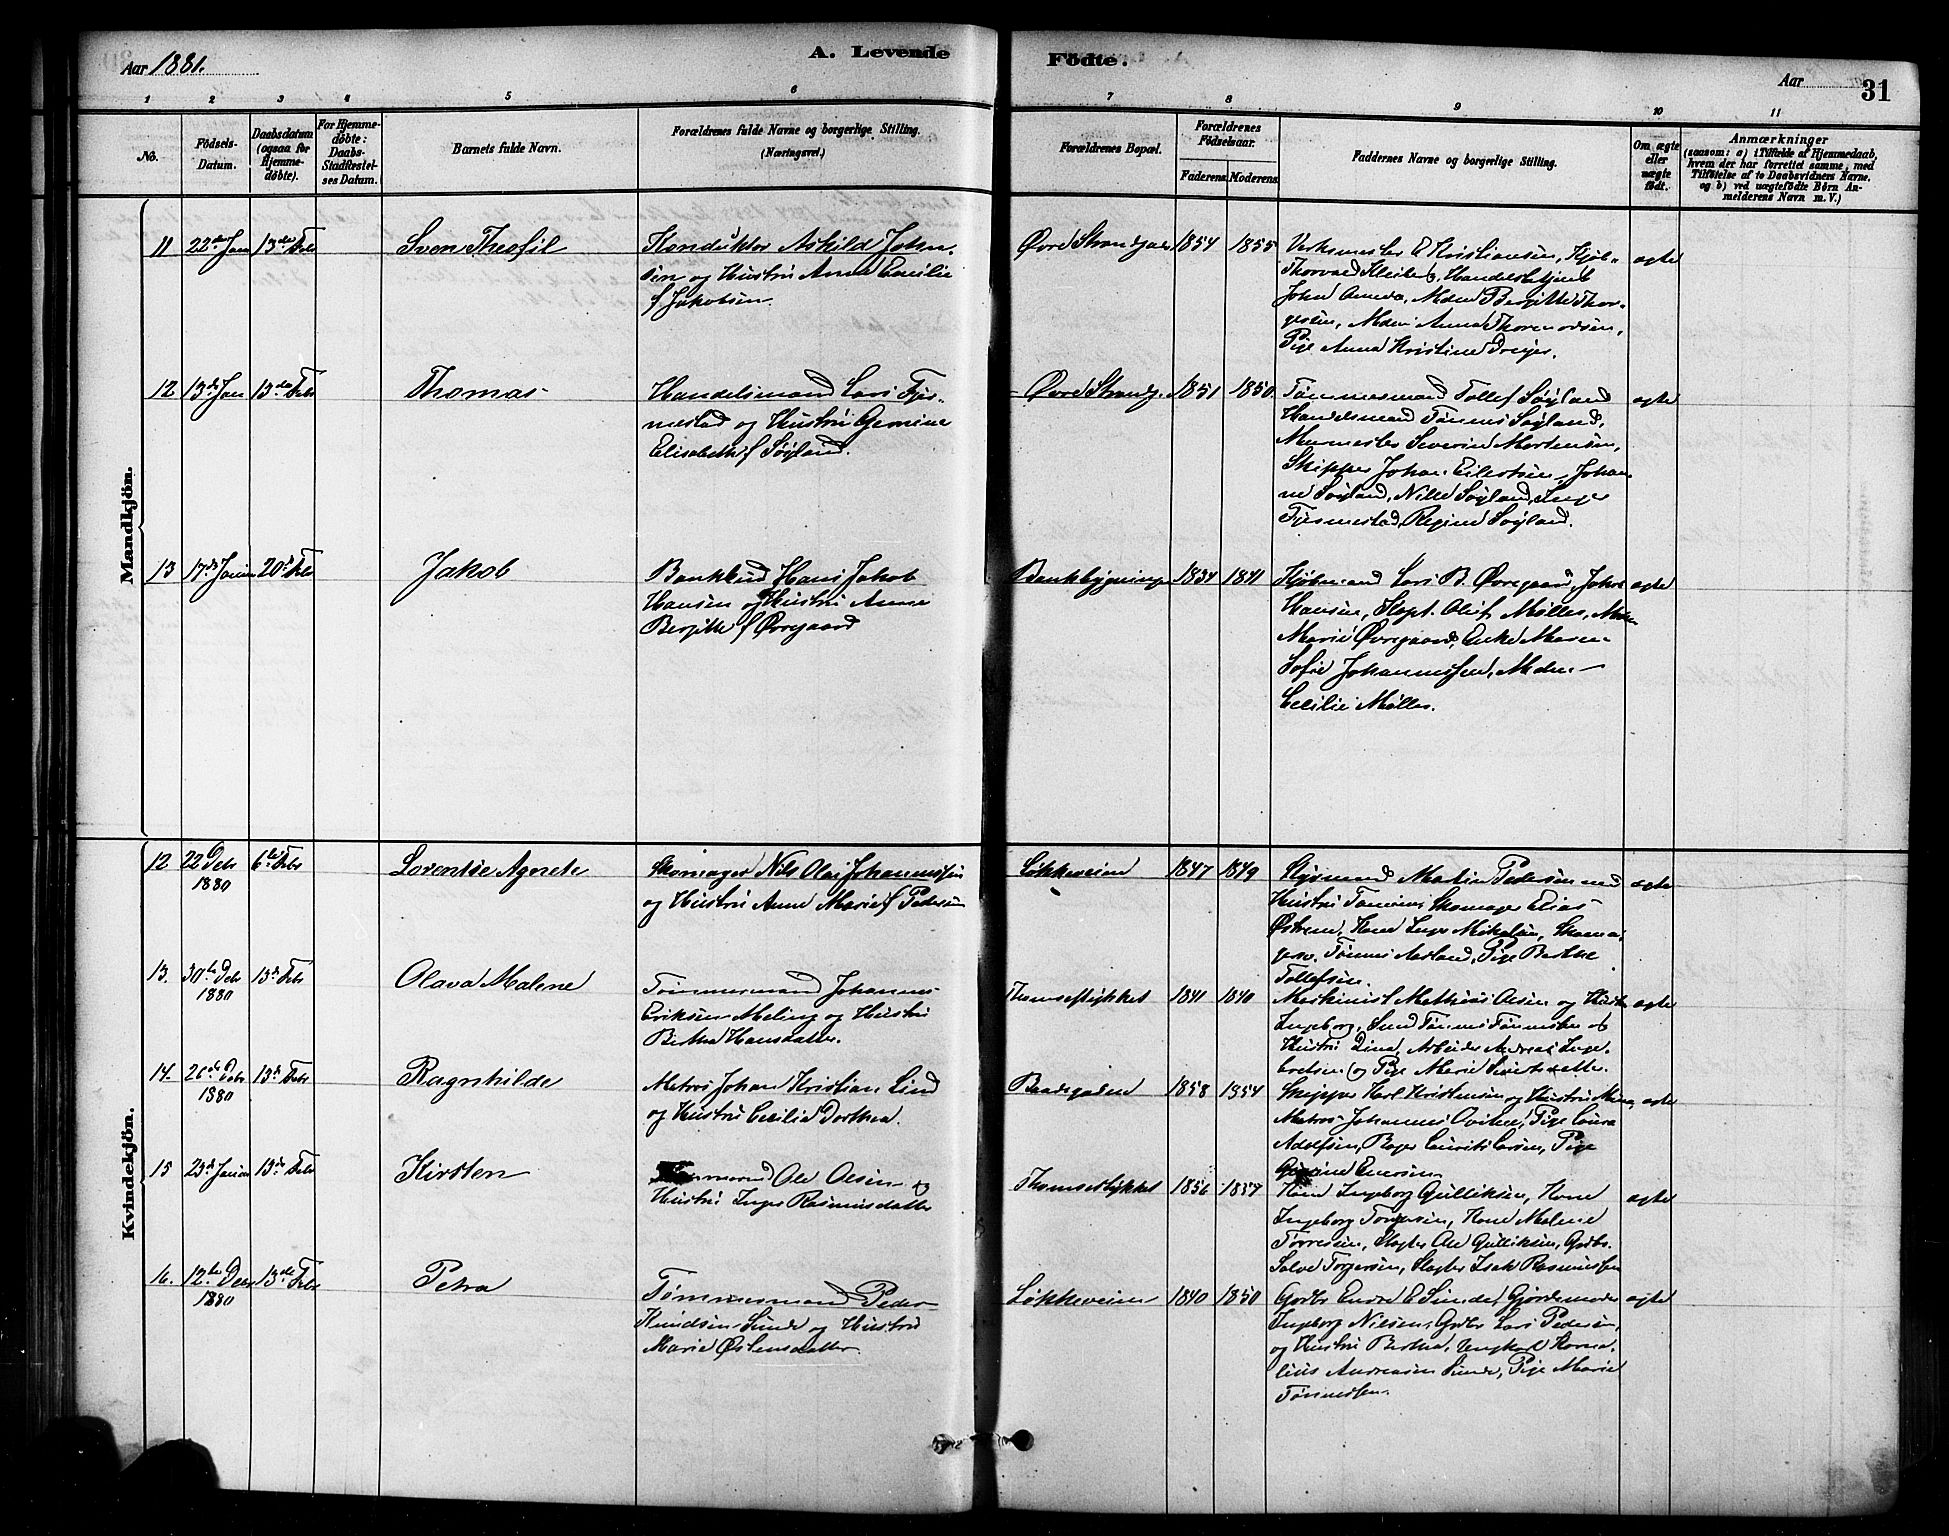 Aar 1881.
A. Levende Födte.
Aar
31
1 2 3 4 5 6 7 8 9 10 11
No.
Födsels-
Datum.
Daabsdatum
(ogsaa for
Hjemme-
döbte).
For Hjemme-
döbte:
Daabs-
Stadfæstel-
ses Datum.
Barnets fulde Navn.
Forældrenes fulde Navne og borgerlige Stilling.
(Næringsvei.)
Forældrenes Bopæl.
Forældrenes
Födselsaar.
Faderens. Moderens.
Faddernes Navne og borgerlige Stilling.
Om ægte
eller
uægte
födt.
Anmærkninger
(saasom: a) i Tilfælde af Hjemmedaab,
hvem der har forrettet samme, med
Tilföielse af to Daabsvidners Navne,
og b) ved uægtefödte Börn An-
melderens Navn m. V.)
Mandkjön.
11 22de Jan 13de Febr
Sven Theofil
Konduktør Askild John-
sen og Hustru Anna Emilie
f Jakobsen.
Øvre Strandgade 1854 1855
Verksmester E Kristiansen, Kjøb-
Thorvald Handelsbetjent
John Mdm Bergitte Thor-
gesen, Mdm Anna Thormodsen,
Pige Anna Kristine Dreyer.
ægte
12 13de Jan 13de Febr
Thomas
Handelsmand Lars Tjes-
mestad og Hustru Gemine
Elisabeth f Søyland.
Øvre Strandg. 1851 1850
Tømmermand Tollef Søyland
Handelsmand Tønnes Søyland,
Murmester Severin Mortensen,
Skipper Johan Eilertsen, Johan-
ne Søyland, Nille Søyland, Inger
Tjesmestad, Regine Søyland.
ægte
13 17de Januar 20de Febr
Jakob
Bankbud Hans Jakob
Hansen og Hustru Anne
Bergitte f Øvregaard
Bankbygningen 1834 1841
Kjøbmand Lars B. Øvregaard, Johs
Hansen, Kapt. Oluf Møller, Mdm
Marie Øvregaard, Enke Maren
Sofie Johannessen, Mdm
Cecilie Møller.
ægte
Kvindekjön.
12 22 Debr 6te Febr
1880
Lorentse Agnete
Skomager Nils Olai Johannessen
og Hustru Anne Marie f Pedersen
Løkkeveien 1847 1849
Styrmand Martin Pedersen med
Hustru Skomager Elias
Østrem, Kone Inger Mikelsen, Skoma-
ger Tønnes Aasland, Pige Berthe
Tollefsen.
ægte
13. 30te Debr 13de Febr
1880
Olava Malene
Tømmermand Johannes
Eriksen Meling og Hustru
Bertha Hansdatter.
Thomsestykket 1841 1840
Maskinist Mathias Olsen og Hustru
Ingeborg, Smed Tønnes Tønnesen og
Hustru Dina, Arbeider Andreas Inge-
bretsen og Pige Marie Sivertsdatter.
ægte
14. 26de Debr 13de Febr
1880
Ragnhilde
Matros Johan Kristian Lind
og Hustru Cecilia Dorthea.
Baadsgaden 1858 1854
Skipper Karl Kristensen og Hustru
Matros Johannes Pige Laura
Adolfsen, Bager Laurits Larsen, Pige
Enersen
ægte
15 23de Januar 13de Febr
Kirsten
Ole Olsen og
Hustru Inger Rasmusdatter
Thomsestykket 1856 1857
Kone Ingeborg Gulliksen, Kone
Ingeborg Torgersen, Kone Malene
Torresen, Slagter Ole Gulliksen, Gaardbr.
Salve Torgersen, Slagter Isak Rasmussen
ægte
16. 12te Debr 13de Febr
1880
Petra
Tømmermand Peder
Knudsen Sunde og Hustru
Marie Østensdatter
Løkkeveien 1840 1850
Gaardbr Endre E Sunde, Gjordemoder
Ingeborg Nilsen, Gaardbr Lars Pedersen,
og Hustru Bertha, Ungkarl Korne-
lius Andreasen Sunde, Pige Marie
Tønnessen.
ægte